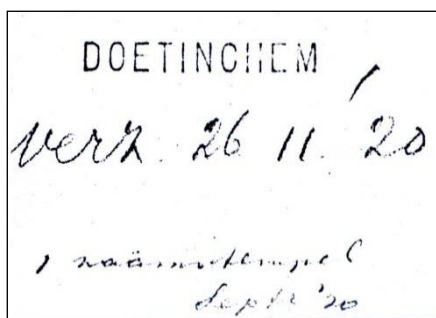 DOETINCHEM
verz. 26 11 '20
1 naamstempel
Sept. '20